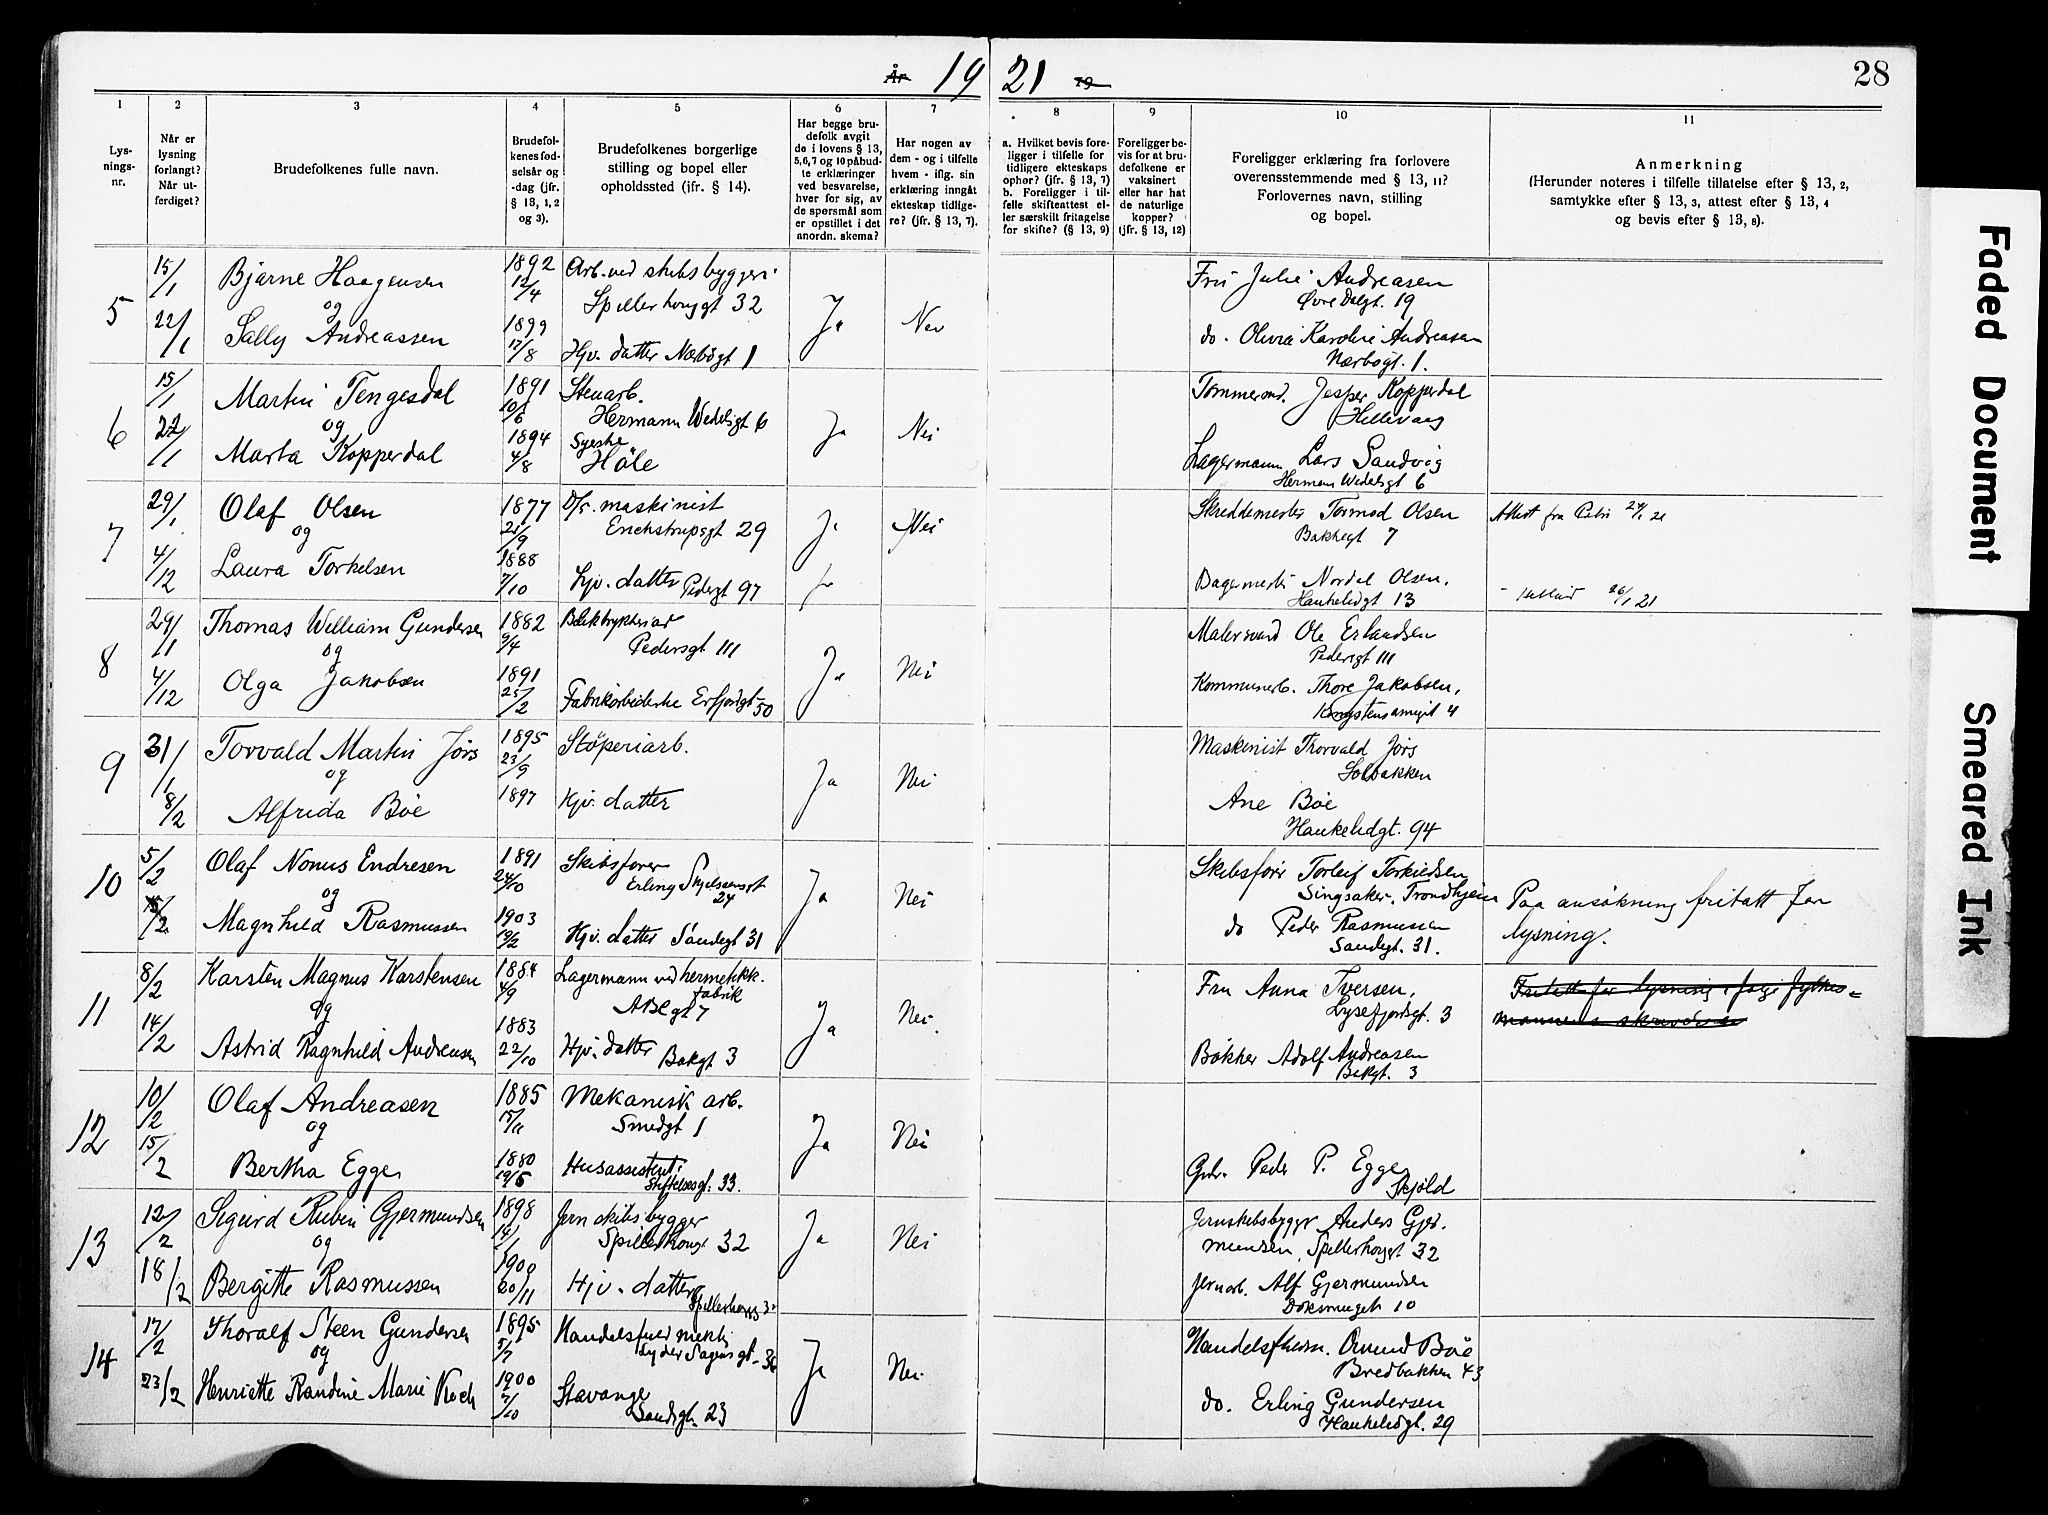 År 19 21 19
28
1
2
3
4
5
6
7
8
9
10
11
Lys-
nings-
nr.
Når er
lysning
forlangt?
Når ut-
ferdiget?
Brudefolkenes fulle navn.
Brudefol-
kenes fød-
selsår og
-dag (jfr.
§ 13, 1, 2
og 3).
Brudefolkenes borgerlige
stilling og bopel eller
opholdssted (jfr. § 14).
Har begge bru-
defolk avgit
de i lovens § 13,
5, 6, 7 og 10 påbud-
te erklæringer
ved besvarelse,
hver for sig, av
de spørsmål som
er opstillet i det
anordn. skema?
Har nogen av
dem - og i tilfelle
hvem - iflg. sin
erklæring inngåt
ekteskap tidlige-
re? (jfr. § 13, 7).
a. Hvilket bevis fore-
ligger i tilfelle for
tidligere ekteskaps
ophør? (jfr. § 13, 7)
b. Foreligger i til-
felle skifteattest el-
ler særskilt fritagelse
for skifte? (§ 13, 9)
Foreligger be-
vis for at bru-
defolkene er
vaksinert
eller har hat
de naturlige
kopper?
(jfr. § 13, 12)
Foreligger erklæring fra forlovere
overensstemmende med § 13, 11?
Forlovernes navn, stilling
og bopel.
Anmerkning
(Herunder noteres i tilfelle tillatelse efter § 13, 2,
samtykke efter § 13, 3, attest efter § 13, 4
og bevis efter § 13, 8).
5
15/1
22/1
Bjarne Haagensen
og
Sally Andreassen
1892
12/4
1899
17/8
Arb. ved skibsbyggeri
Spillerhauggt 32
Hjv. datter Nærbøgt 1
Ja
Nei
Fru Julie Andreasen
Øvre Dalgt. 19
do. Olivia Karoline Andreasen
Nærbøgt. 1.
6
15/1
22/1
Martin Tengesdal
og
Marta Kopperdal
1891
10/6
1894
4/8
Stenarb.
Hermann Wedelsgt 6
Syerske
Høle
Ja
Nei
Tømmermd. Jesper Kopperdal
Hellevaag
Lagermann Lars Sandvig
Herman Wedelsgt 6
7
29/1
4/12
Olaf Olsen
og
Laura Torkelsen
1877
21/9
1888
7/10
D/s. maskinist
Erichstrupsgt 29
Hjv. datter Pedersgt 97
Ja
Nei
Skreddermester Tormod Olsen
Bakkegt 7
Bagermester Nordal Olsen,
Haukeligt 13
Attest fra Petri 24/1 21
26/1 21
8
29/1
4/12
Thomas William Gundersen
og
Olga Jakobsen
1882
9/4
1891
25/2
Blektrykkeriar
Pedersgt 111
Fabrikarbeiderske Erfjordgt 50
Ja
Nei
Malersvend Ole Erlandsen
Pedersgt 111
Kommunearb. Thore Jakobsen,
Kongstensamegt 4
9
31/1
8/2
Torvald Martin Jørs
og
Alfrida Bøe
1895
23/9
1897
Støperiarb.
Hjv. datter
Ja
Nei
Maskinist Thorvald Jørs
Solbakken
Ane Bøe
Haukeligt. 94
10
5/2
15/2
Olaf Nonus Endresen
og
Magnhild Rasmussen
1891
24/10
1903
19/2
Skibsfører
Erling Skjalgssonsgt
24
Hjv. datter Sandegt 31
Ja
Nei
Skibsfører Torleif Torkildsen
Singsaker, Trondhjem
do Peder Rasmussen
Sandegt. 31.
Paa ansøkning fritatt for
lysning.
11
8/2
14/2
Karsten Magnus Karstensen
og
Astrid Ragnhild Andreasen
1884
4/9
1883
22/10
Lagermann ved hermetikk.
fabrik
ABC gt 7
Hjv. datter Bakgt 3
Ja
Nei.
Fru Anna Iversen,
Lysefjordsgt. 3
Bøkker Adolf Andreasen
Bakgt. 3
Fritatt for lysning ifølge fylkes-
mannens skrivelse
12
10/2
15/2
Olaf Andreasen
og
Bertha Egge
1885
15/11
1880
19/5
Mekanisk arb.
Smedgt 1
Husassistent
Stiftelsesgt. 33.
Ja
Nei
Gdr. Peder P. Egge
Skjold
13
12/2
18/2
Sigurd Rubin Gjermundsen
og
Bergitte Rasmussen
1898
14/1
1900
20/11
Jern skibsbygger
Spillerhougt 32
Hjv. datter
Spillerhaugg 32
Ja
Nei
Jernskibsbygger Anders Gjer.
mundsen, Spillerhaugt 32
Jernarb. Alf Gjermundsen
Doksmuget 10
14
17/2
23/2
Thoralf Steen Gundersen
og
Henriette Randine Marie Koch
1895
5/7
1900
7/10
Handelsfuldmekti
Lyder Sagens gt. 36
Stavanger
Sandsgt. 23
Ja
Nei
Handelsfuldm. Omund Bøe
Bredbakken 43
do. Erling Gundersen
Haukeligt. 29
Faded Document
Smeared Ink